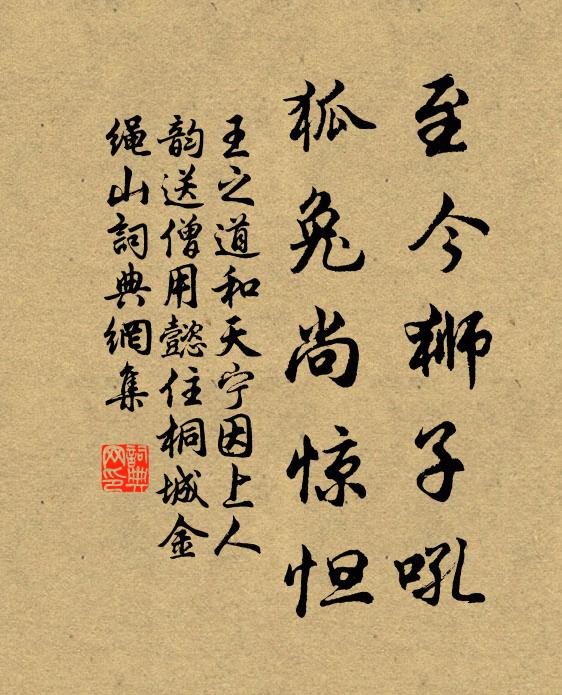 至今狮子吼
狐兔尚惊怛
王之道和天宁因上人
韵送僧用懿住桐城金
绳山詞典網集
詞典网印